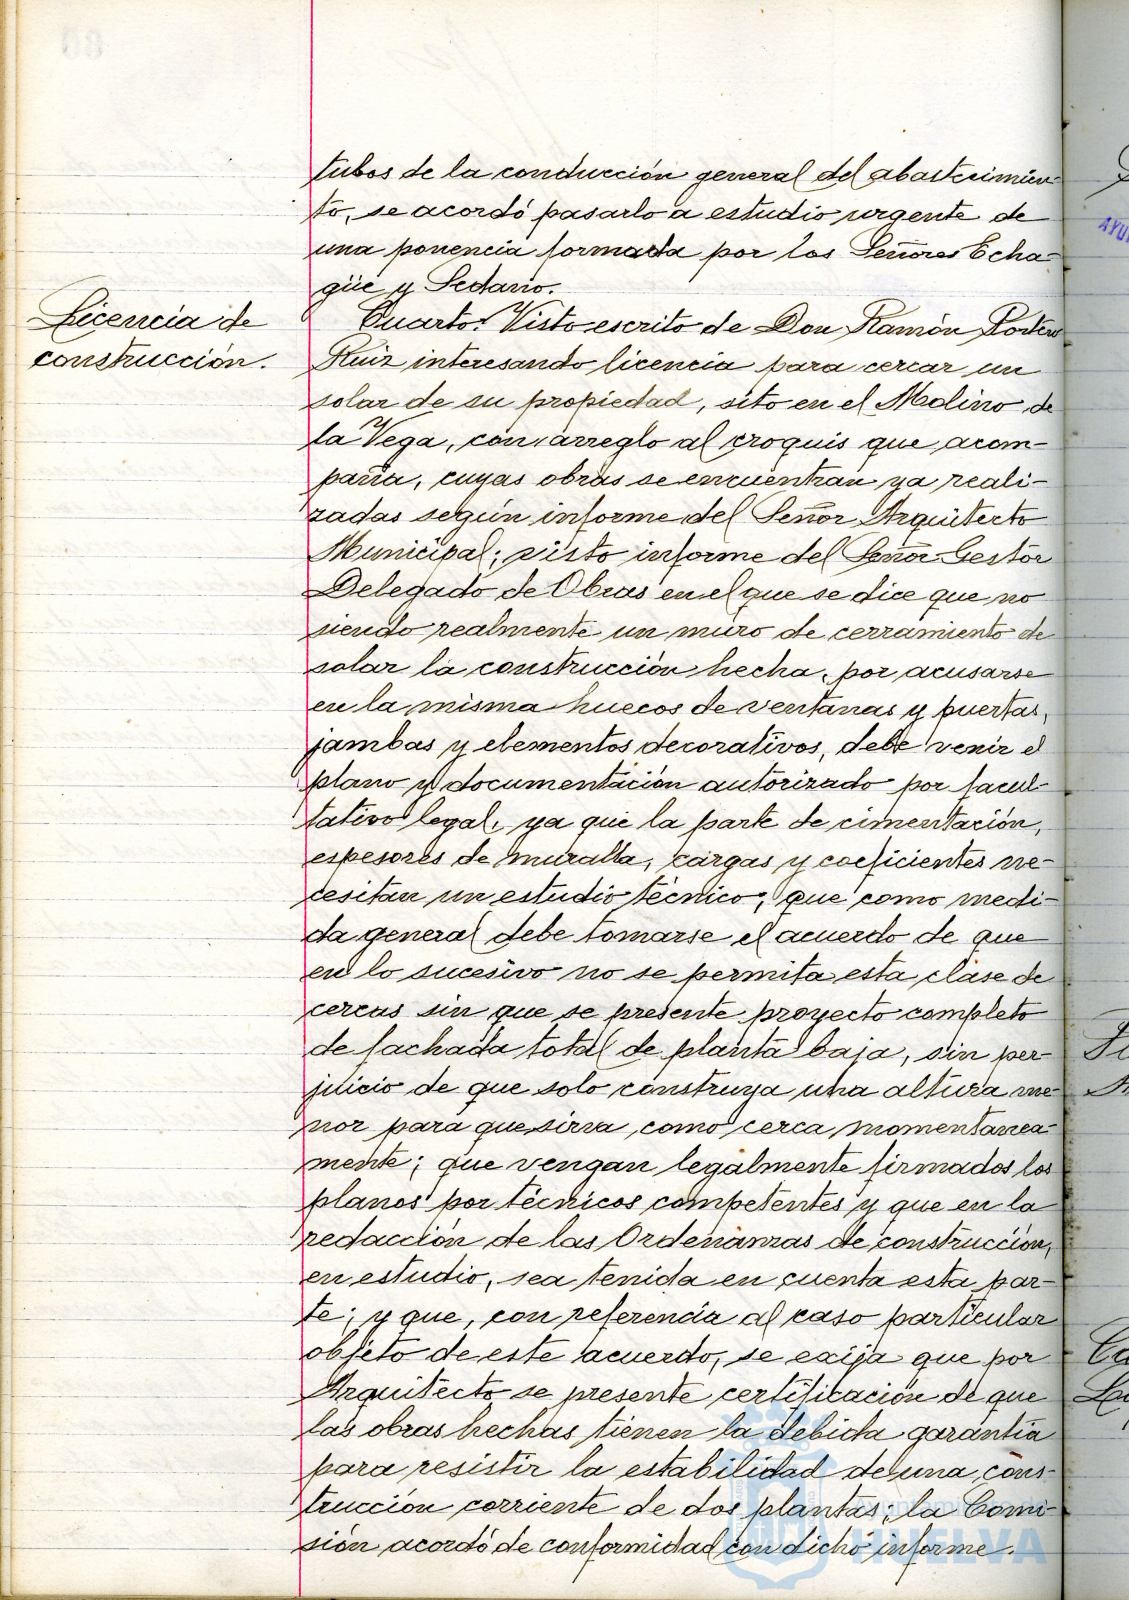 tubos de la conducción general del abastecimien-
to, se acordó pasarlo a estudio urgente de
una ponencia formada por los Señores Echa-
güe y Sedano.
Licencia de
construcción.
Cuarto. Visto escrito de Don Ramón Portero
Ruiz interesando licencia para cercar un
solar de su propiedad, sito en el Molino de
la Vega, con arreglo al croquis que acom-
paña, cuyas obras se encuentran ya reali-
zadas según informe del Señor Arquitecto
Municipal; visto informe del Señor Gestor
Delegado de Obras en el que se dice que no
siendo realmente un muro de cerramiento de
solar la construcción hecha, por acusarse
en la misma huecos de ventanas y puertas,
jambas y elementos decorativos, debe venir el
plano y documentación autorizado por facul-
tativo legal, ya que la parte de cimentación,
espesores de muralla, cargas y coeficientes ne-
cesitan un estudio técnico; que como medi-
da general debe tomarse el acuerdo de que
en lo sucesivo no se permita esta clase de
cercas sin que se presente proyecto completo
de fachada total de planta baja, sin per-
juicio de que solo construya una altura me-
nor para que sirva como cerca momentanea-
mente; que vengan legalmente firmados los
planos por técnicos competentes y que en la
redacción de las Ordenanzas de construcción,
en estudio, sea tenida en cuenta esta par-
te; y que, con referencia al caso particular
objeto de este acuerdo, se exija que por
Arquitecto se presente certificación de que
las obras hechas tienen la debida garantía
para resistir la estabilidad de una cons-
trucción corriente de dos plantas; la Comi-
sión acordó de conformidad con dicho informe.
HUELVA